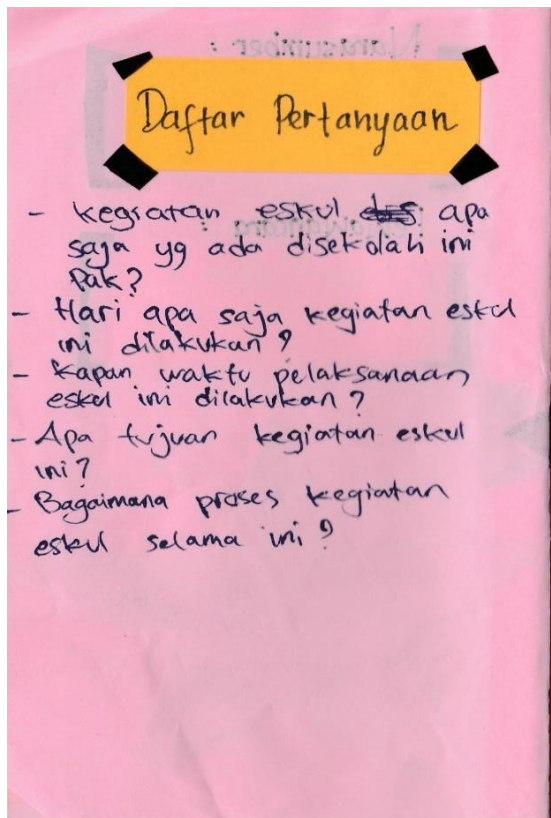 Daftar Pertanyaan
- kegiatan eskul apa
saja yg ada disekolah ini
Pak?
- Hari apa saja kegiatan eskul
ini dilakukan?
- Kapan waktu pelaksanaan
eskul ini dilakukan?
- Apa tujuan kegiatan eskul
ini?
- Bagaimana proses kegiatan
eskul selama ini?